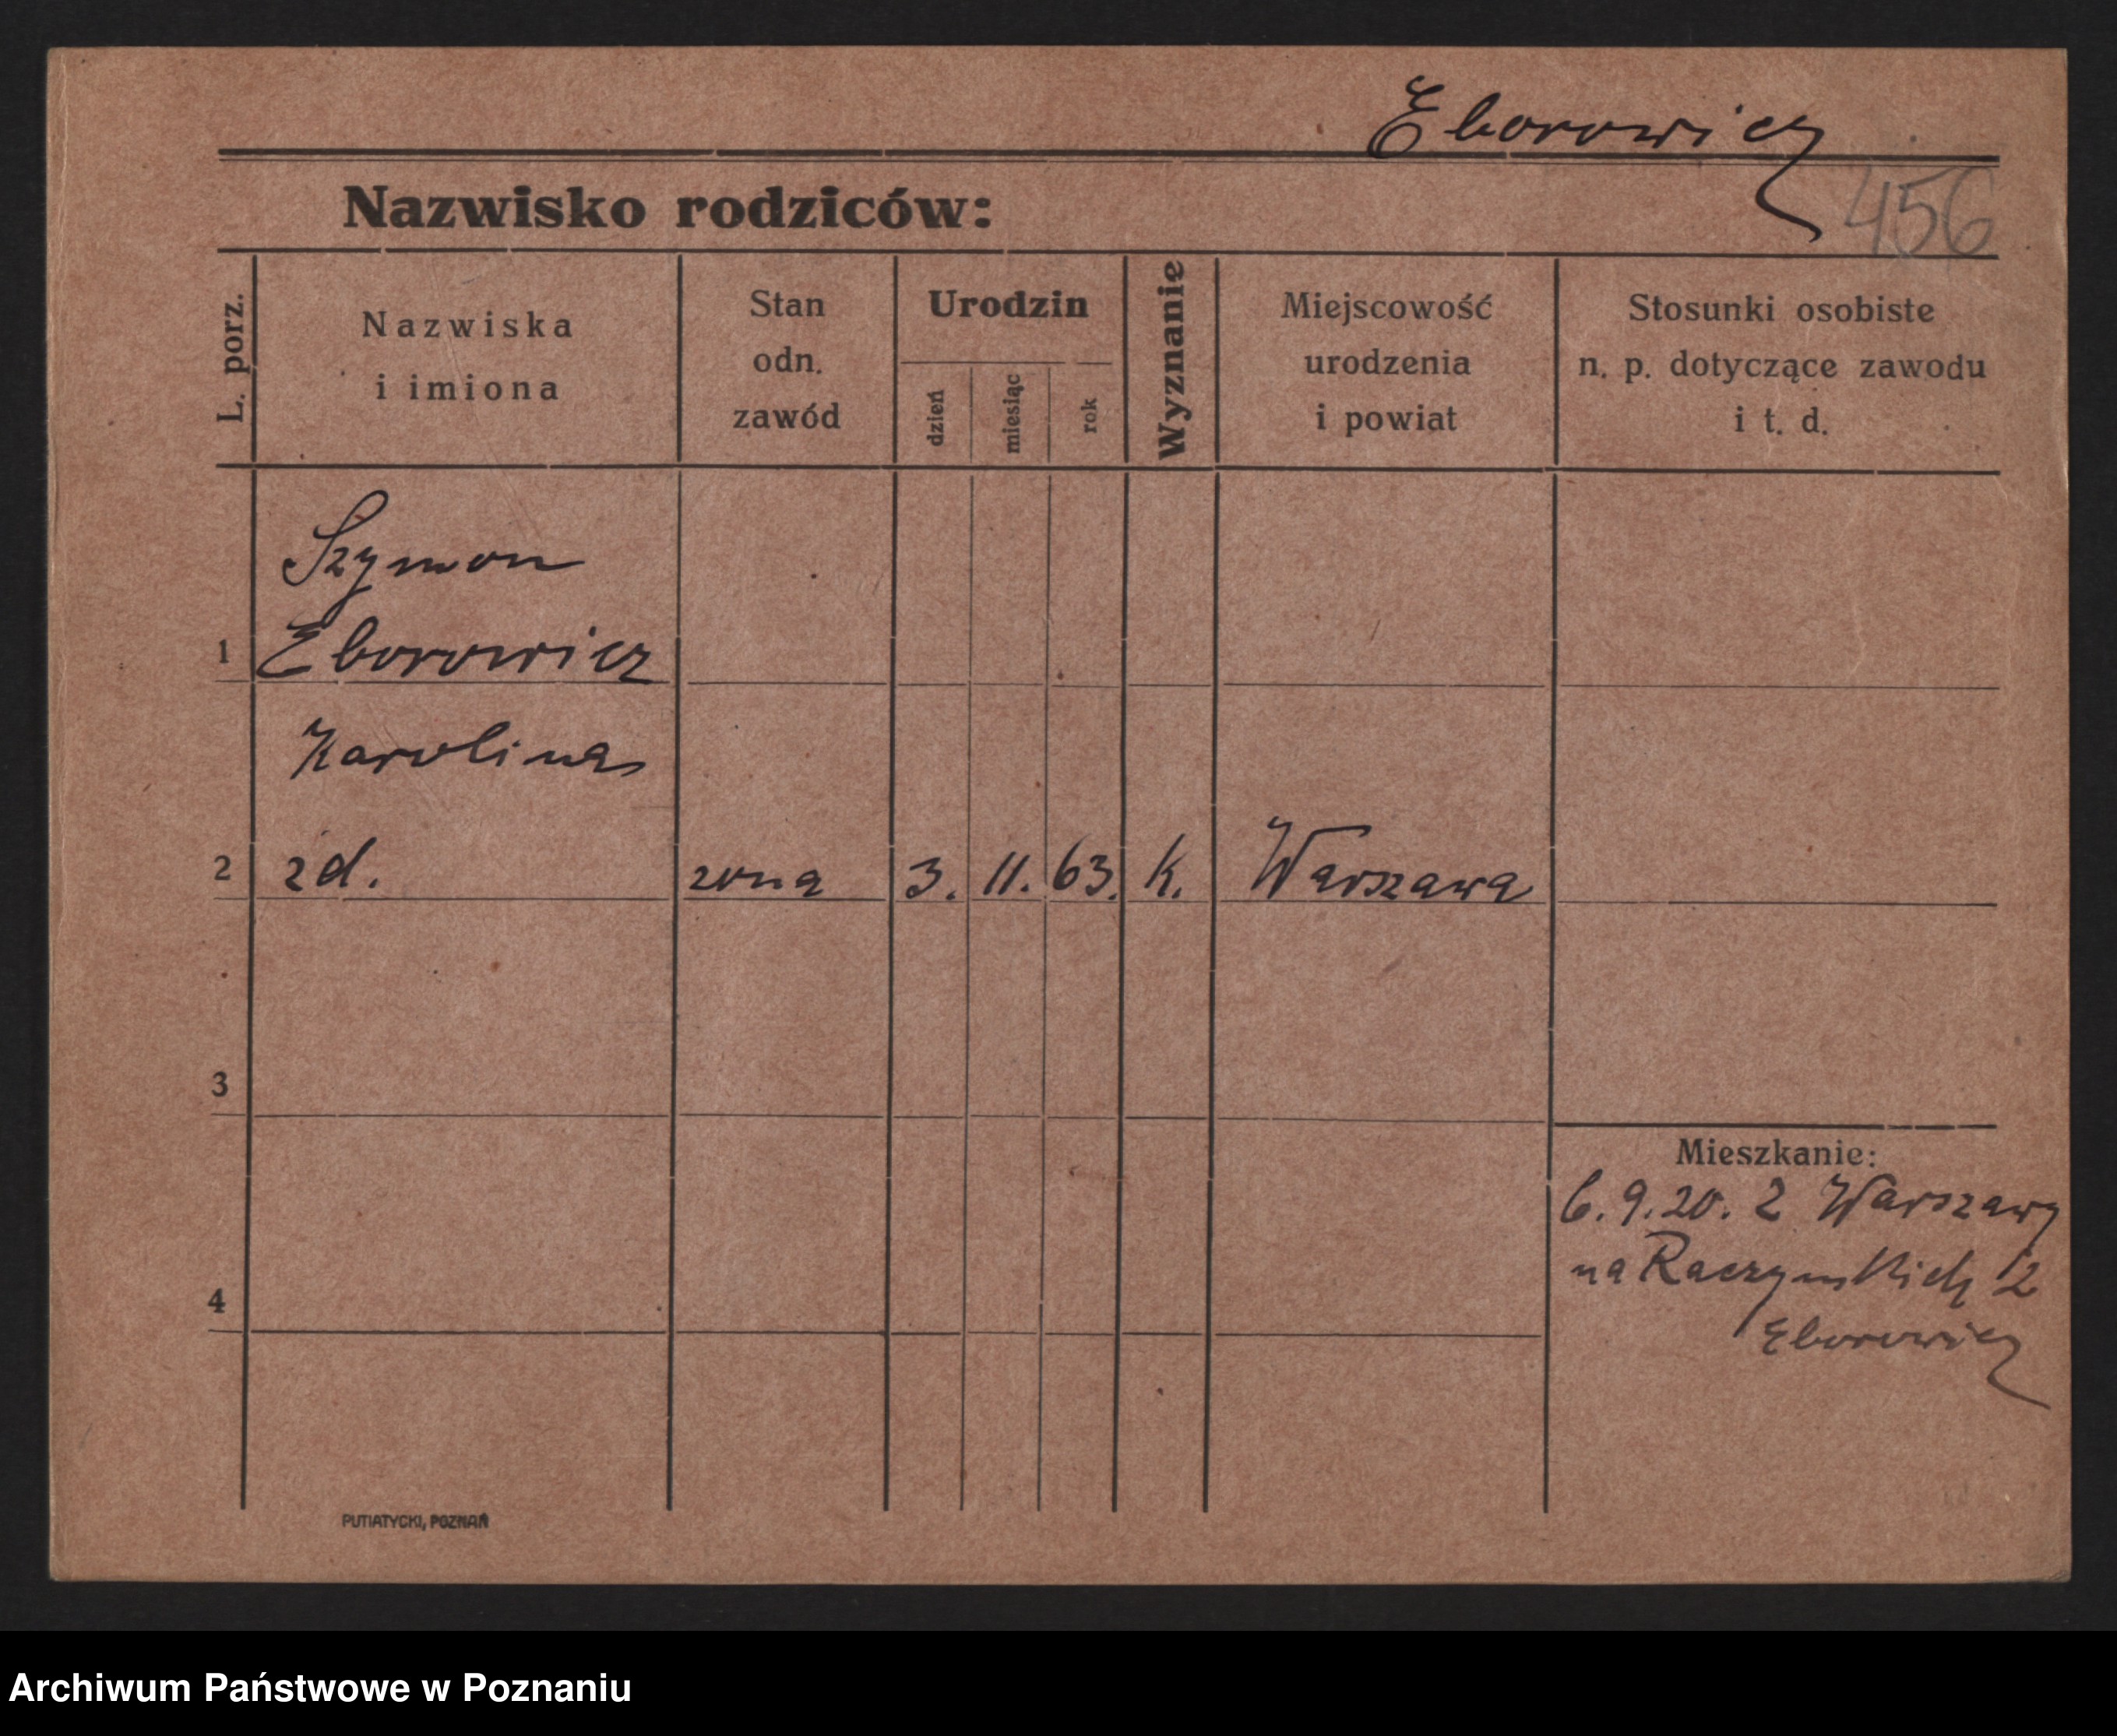 Eborowicz
456
Nazwisko rodziców:
L. porz.
Nazwiska
i imiona
Stan
odn.
zawód
Urodzin
dzień
miesiąc
rok
Wyznanie
Miejscowość
urodzenia
i powiat
Stosunki osobiste
n. p. dotyczące zawodu
i t. d.
Szymon
1 Eborowicz
Karolina
2 zd. zona 3. 11. 63. k. Warszawa
3
Mieszkanie:
6.9.20. z Warszawy
na Raczynskich 12
4
Eborowicz
PUTIATYCKI, POZNAŃ
Archiwum Państwowe w Poznaniu